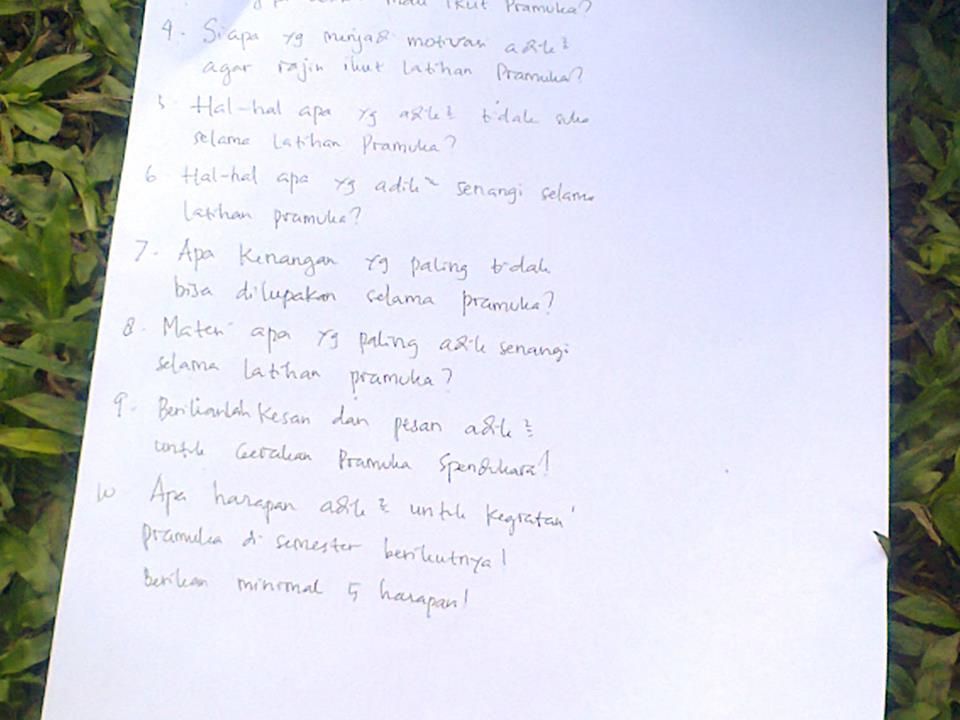 mau ikut Pramuka?
4. Siapa yg menjadi motivasi adik²
agar rajin ikut latihan Pramuka?
5. Hal-hal apa yg adik² tidak suka
selama latihan Pramuka?
6 Hal-hal apa yg adik² senangi selama
latihan pramuka?
7. Apa kenangan yg paling tidak
bisa dilupakan selama pramuka?
8. Materi apa yg paling adik senangi
selama latihan pramuka?
9. Berikanlah kesan dan pesan adik²
untuk Gerakan Pramuka Spendukara!
10 Apa harapan adik² untuk kegiatan
pramuka di semester berikutnya!
Berikan minimal 5 harapan!